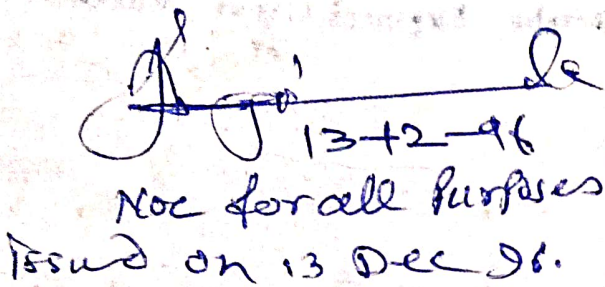 13-12-96
Noc for all Purposes
issued on 13 Dec 96.